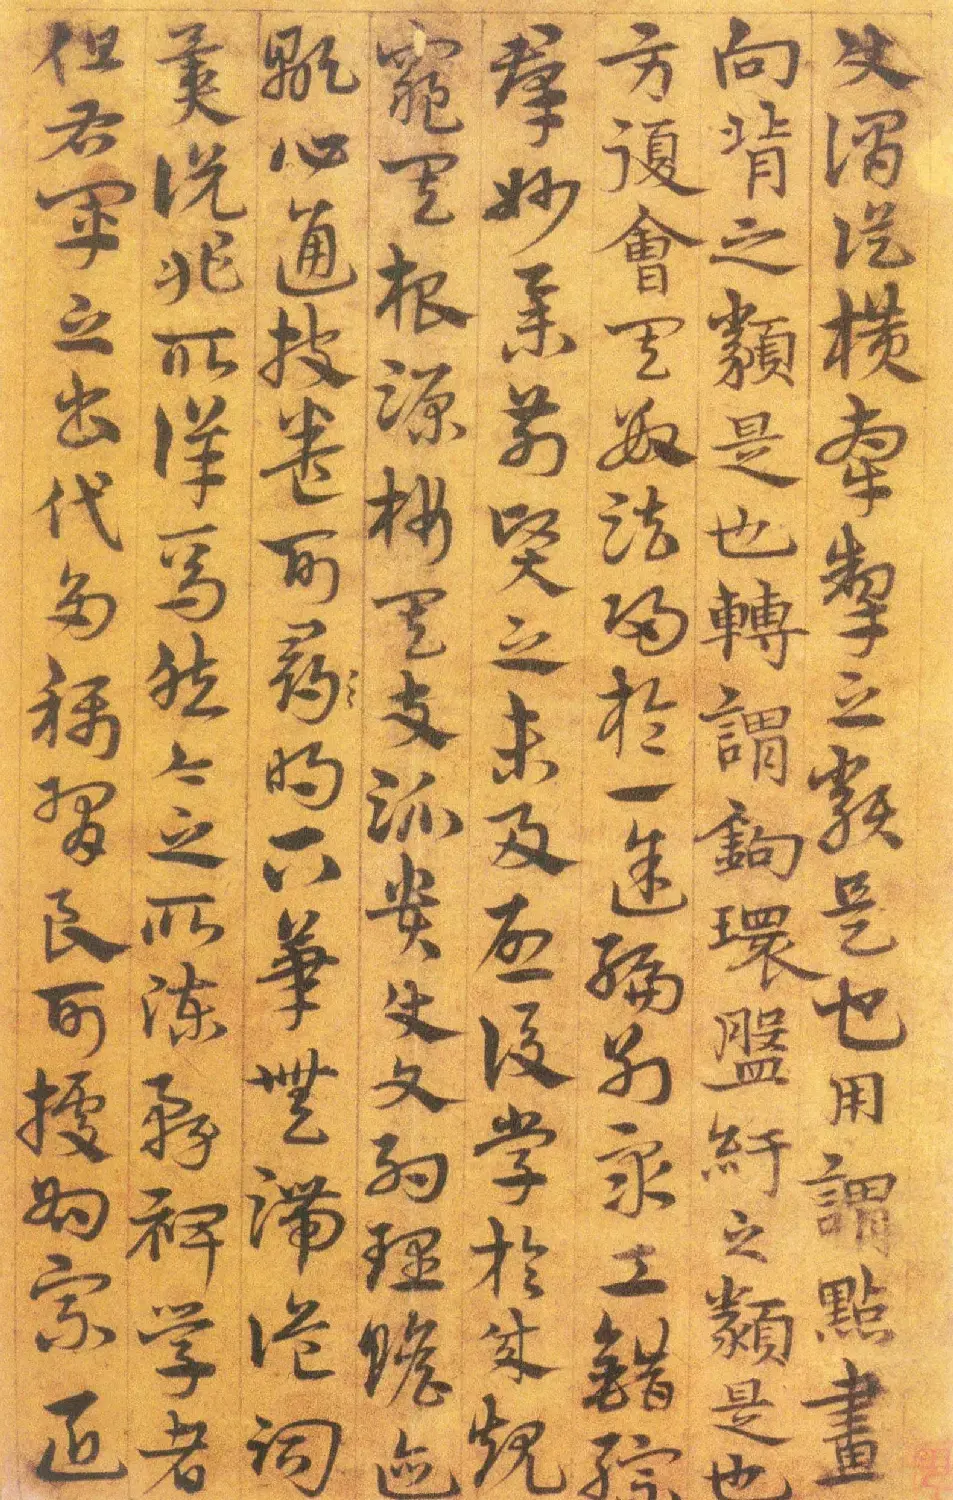 使謂縱橫牽掣之類是也用謂點畫
向背之類是也轉謂鉤環盤紆之類是也
方復會其數法歸於一途編列衆工錯綜
羣妙舉前賢之未及啓後學於成規
窺其根源析其支派貴使文約理贍迹
顯心通披卷可尋明下筆無滯詭詞
異說非所詳焉然今之所陳務裨學者
但右軍之書代多稱習良可據爲宗匠